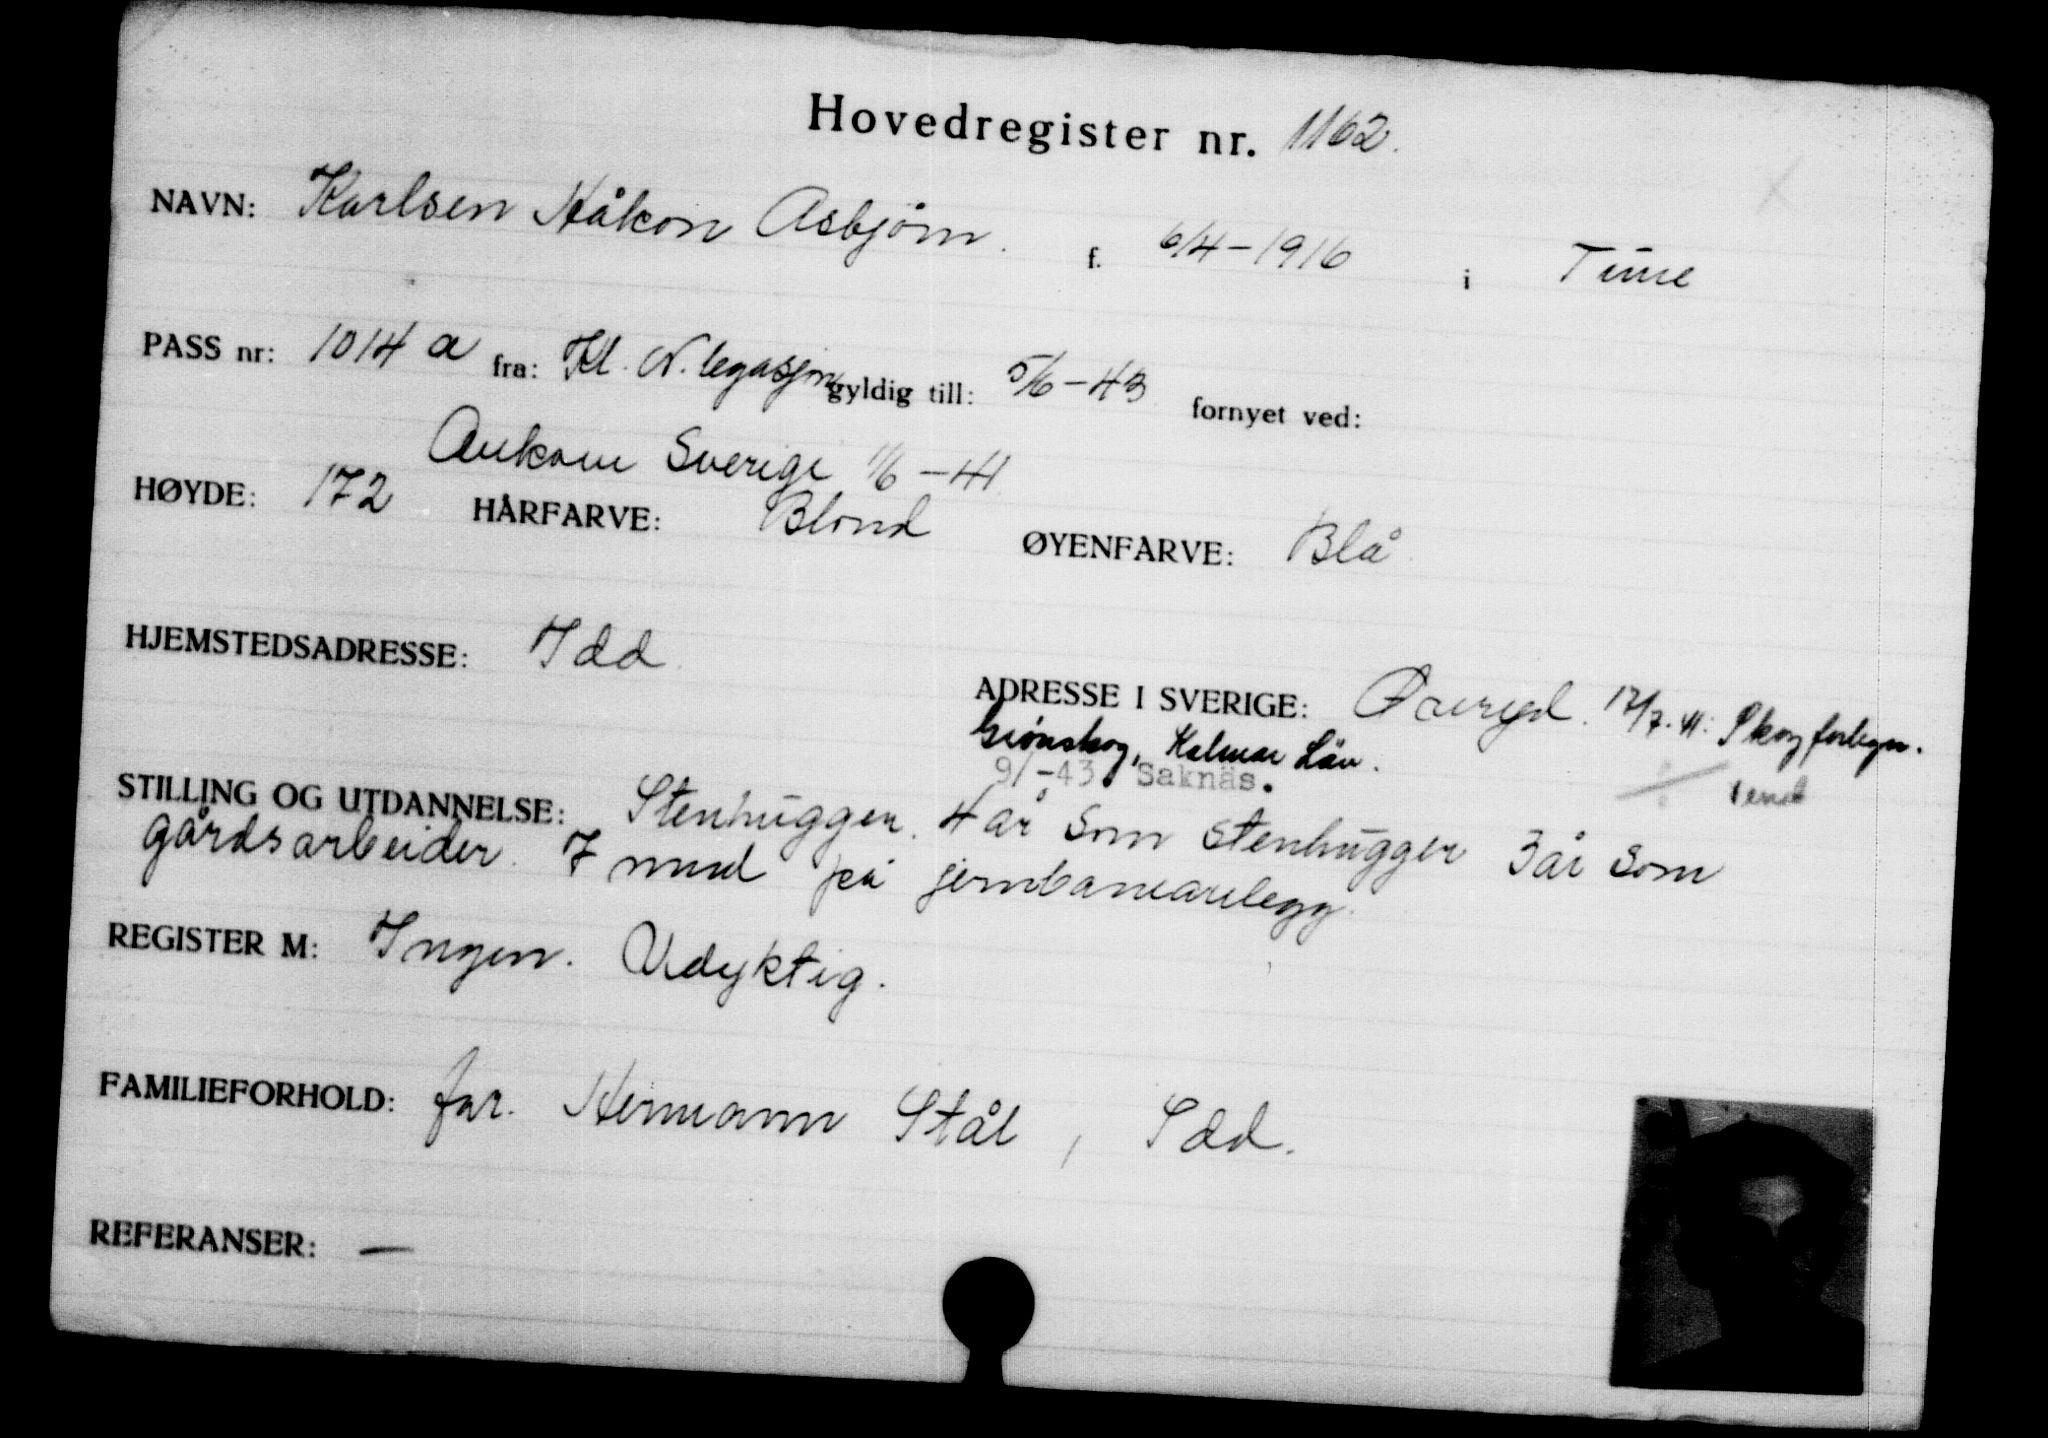 Hovedregister nr. 1162.
NAVN: Karlsen Håkon Asbjørn. f. 6/4-1916 i Tune
PASS nr: 1014 a fra: Kl. N. legasjon gyldig till: 5/6-43 fornyet ved:
Ankom Sverige 1/6-41
HØYDE: 172 HÅRFARVE: Blond ØYENFARVE: Blå
HJEMSTEDSADRESSE: Idd
ADRESSE I SVERIGE: 17/7.41: Skogforlegn.
Grönskog, Kalmar Län.
9/-43 Saknäs. vend
STILLING OG UTDANNELSE: Stenhugger. 4 år som stenhugger 3 år som
gårdsarbeider. 7 mnd på jernbaneanlegg.
REGISTER M: Ingen. Udyktig.
FAMILIEFORHOLD: far. Hermann Stål, Idd.
REFERANSER: —